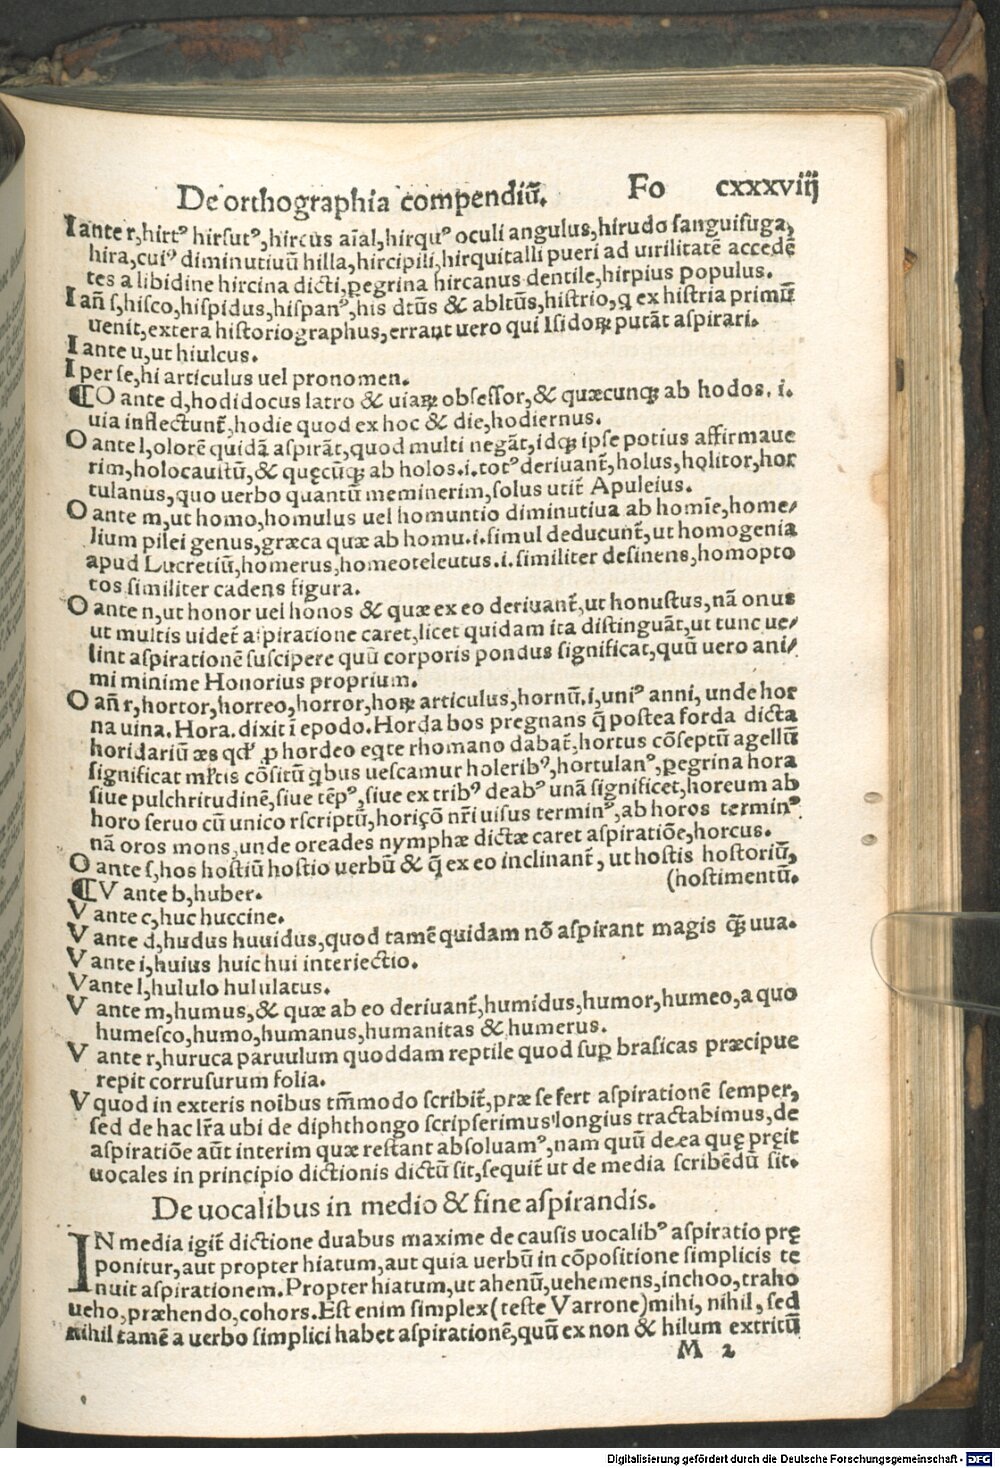 De orthographia compendiū. Fo cxxxviij
I ante r, hirtꝰ hirsutꝰ, hircus aīal, hirquꝰ oculi angulus, hirudo sanguisuga,
hira, cuiꝰ diminutiuū hilla, hircipili, hirquitalli pueri ad uirilitatē accedē
tes a libidine hircina dicti, ꝑegrina hircanus dentile, hirpius populus.
I añ s, hisco, hispidus, hispanꝰ, his dtūs & abltūs, histrio, q ex histria primū
uenit, extera historiographus, errant uero qui Isidoꝝ putāt aspirari.
I ante u, ut hiulcus.
I per se, hi articulus uel pronomen.
¶O ante d, hodidocus latro & uiaꝝ obsessor, & quæcunqꝫ ab hodos .i.
uia inflectunt̃, hodie quod ex hoc & die, hodiernus.
O ante l, olorē quidā aspirāt, quod multi negāt, idqꝫ ipse potius affirmaue
rim, holocaustū, & quęcūqꝫ ab holos .i. totꝰ deriuant̃, holus, holitor, hor
tulanus, quo uerbo quantū meminerim, solus utit̃ Apuleius.
O ante m, ut homo, homulus uel homuntio diminutiua ab homīe, home/
lium pilei genus, græca quæ ab homu .i. simul deducunt̃, ut homogenia
apud Lucretiū, homerus, homeoteleutus .i. similiter desinens, homopto
tos similiter cadens figura.
O ante n, ut honor uel honos & quæ ex eo deriuant̃, ut honustus, nā onus
ut multis uidet̃ aspiratione caret, licet quidam ita distinguāt, ut tunc ue/
lint aspirationē suscipere quū corporis pondus significat, quū uero ani/
mi minime Honorius proprium.
O añ r, hortor, horreo, horror, hoꝝ articulus, hornū .i, uniꝰ anni, unde hor
na uina. Hora. dixit ī epodo. Horda bos pregnans q̄ postea forda dicta
horidariū æs qd' ꝓ hordeo eqte rhomano dabat̃, hortus cōseptū agellū
significat ml'tis cōsitū qbus uescamur holeribꝰ, hortulanꝰ, ꝑegrina hora
siue pulchritudinē, siue tēpꝰ, siue ex tribꝰ deabꝰ unā significet, horeum ab
horo seruo cū unico r scriptū, horiçō nr̄i uisus terminꝰ, ab horos terminꝰ
nā oros mons, unde oreades nymphæ dictæ caret aspiratiōe, horcus.
O ante s, hos hostiū hostio uerbū & q̄ ex eo inclinant̃, ut hostis hostoriū,
(hostimentū.
¶V ante b, huber.
V ante c, huc huccine.
V ante d, hudus huuidus, quod tamē quidam nō aspirant magis q̄ꝫ uua.
V ante i, huius huic hui interiectio.
V ante l, hululo hululatus.
V ante m, humus, & quæ ab eo deriuant̃, humidus, humor, humeo, a quo
humesco, humo, humanus, humanitas & humerus.
V ante r, huruca paruulum quoddam reptile quod suꝑ brasicas præcipue
repit corrusurum folia.
V quod in exteris noībus tm̄modo scribit̃, præ se fert aspirationē semper,
sed de hac lr̄a ubi de diphthongo scripserimus longius tractabimus, de
aspiratiōe aūt interim quæ restant absoluamꝰ, nam quū de ea quę pręit
uocales in principio dictionis dictū sit, sequit̃ ut de media scribēdū sit.
De uocalibus in medio & fine aspirandis.
IN media igit̃ dictione duabus maxime de causis uocalibꝰ aspiratio prę
ponitur, aut propter hiatum, aut quia uerbū in cōpositione simplicis te
nuit aspirationem. Propter hiatum, ut ahenū, uehemens, inchoo, traho
ueho, præhendo, cohors. Est enim simplex (teste Varrone) mihi, nihil, sed
nihil tamē a uerbo simplici habet aspirationē, quū ex non & hilum extritū
M 2
Digitalisierung gefördert durch die Deutsche Forschungsgemeinschaft - DFG